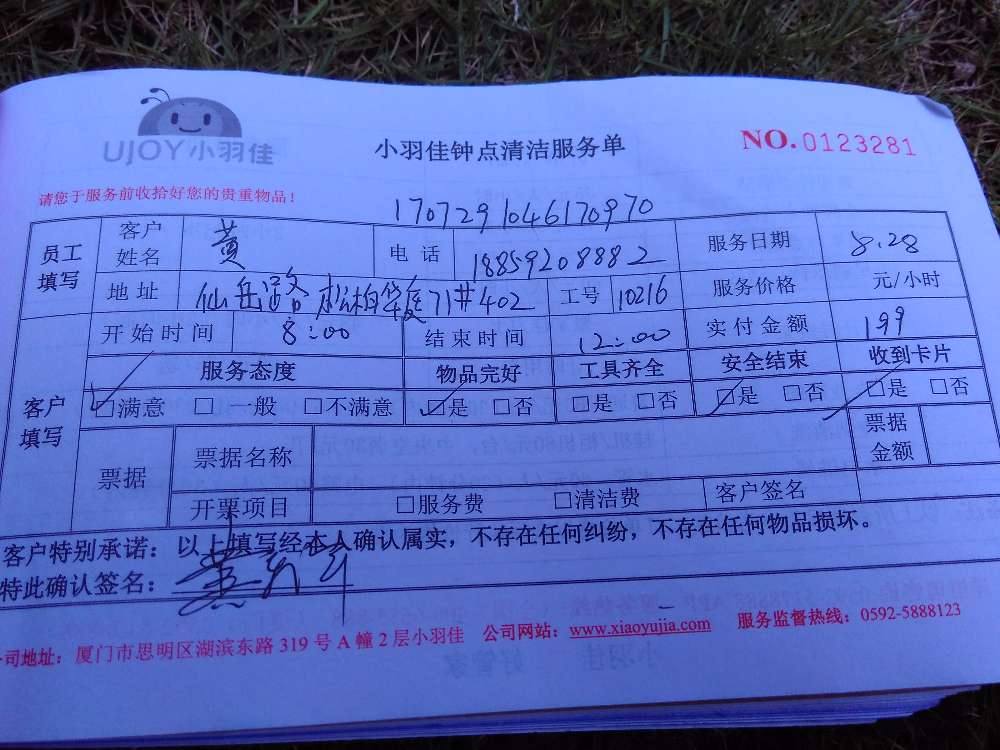 UJOY小羽佳
小羽佳钟点清洁服务单
NO.0123281
请您于服务前收拾好您的贵重物品！
1707291046170970
员工填写 客户姓名 黄 电话 18859208882 服务日期 8.28
地址 仙岳路松柏华庭71#402 工号 10216 服务价格 元/小时
开始时间 8:00 结束时间 12:00 实付金额 199
客户填写 服务态度 物品完好 工具齐全 安全结束 收到卡片
□满意 □一般 □不满意 □是 □否 □是 □否 □是 □否 □是 □否
票据 票据名称 票据金额
开票项目 □服务费 □清洁费 客户签名
客户特别承诺：以上填写经本人确认属实，不存在任何纠纷，不存在任何物品损坏。
特此确认签名：
公司地址：厦门市思明区湖滨东路319号A幢2层小羽佳 公司网站：www.xiaoyujia.com 服务监督热线：0592-5888123